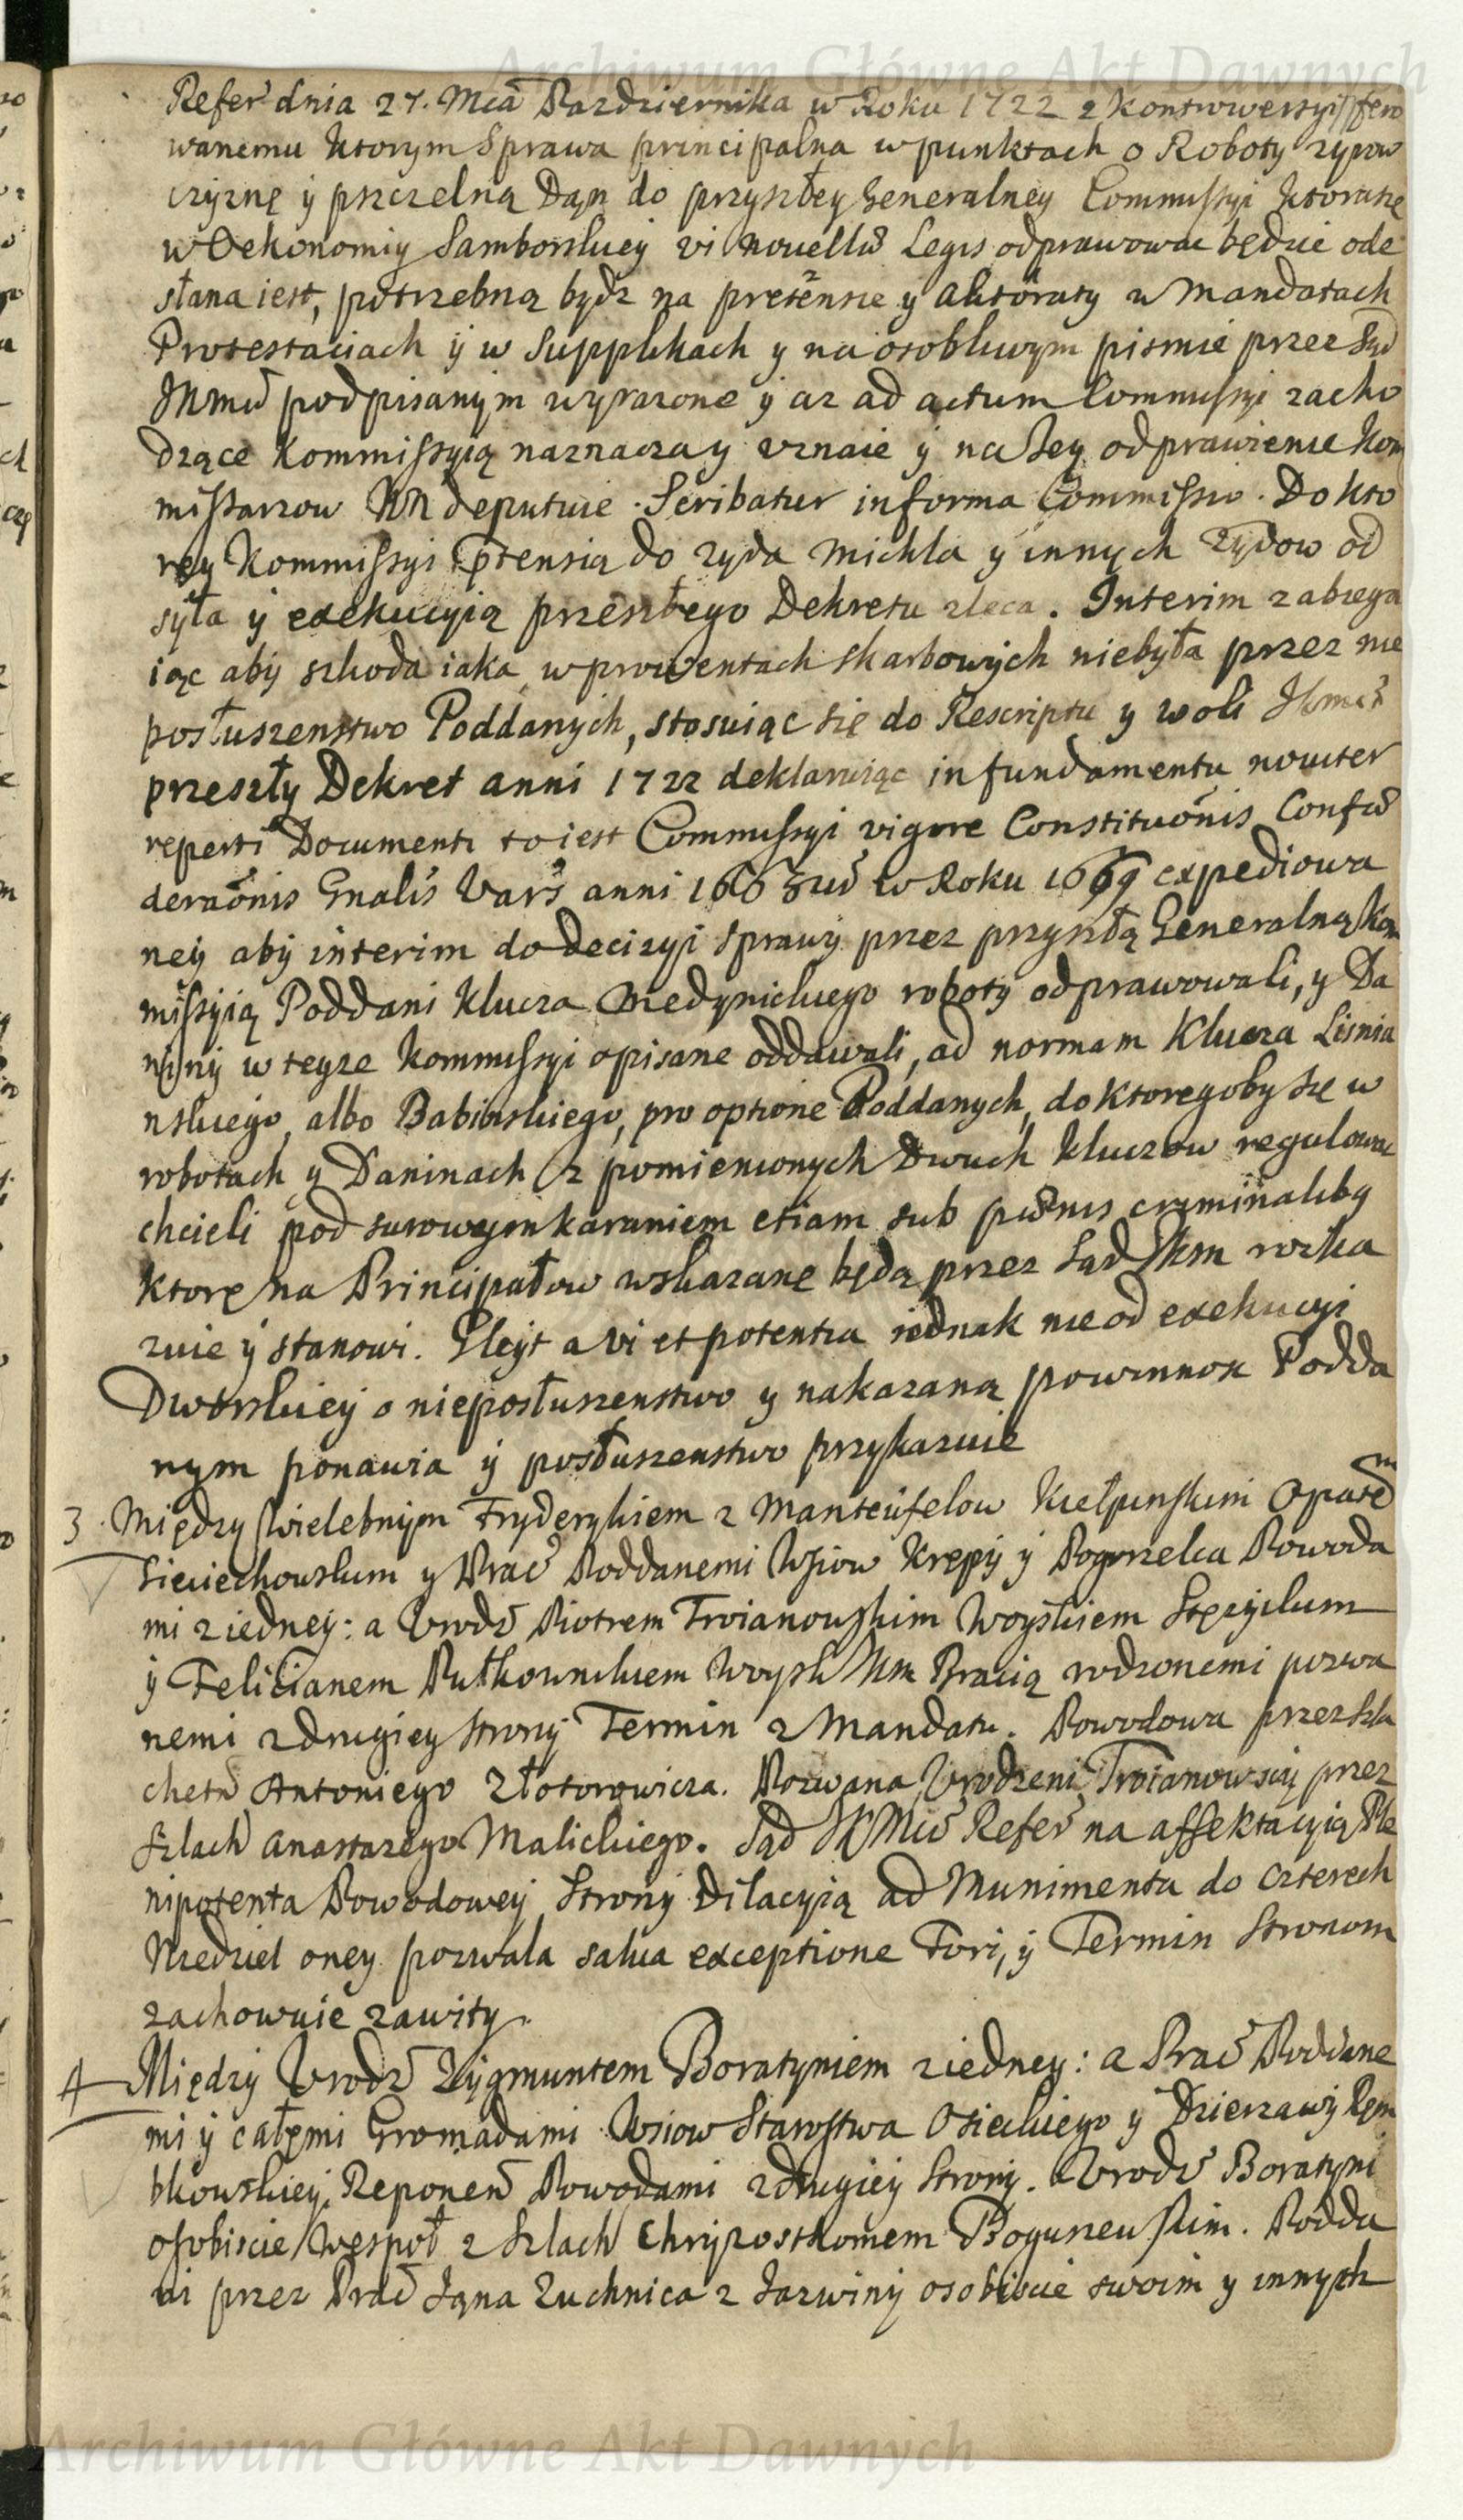 Archiwum Główne Akt Dawnych
Refer dnia 27. Mca Pazdziernika w Roku 1722 z kontrowersyi ffero
wanemu ktorym Sprawa principalna w punktach o Roboty zyrow
czyznę y pszczelną Dąn do przyszłey Generalney Commissyi ktorasie
w Oekonomiy Samborskiey vi novellæ Legis odprawowac będzie ode
słana iest, potrzebną bydz na pretensie y aktoraty w Mandatach
Protestaciach y w Supplikach y na osobliwym pismie przez Sąd
JKMći podpisanym wyrazone y az ad actum Commissyi zacho
dzące Kommissyią naznaczay uznaie y na Jey odprawienie Kom
missarzow NN deputuie. Scribatur in forma Commissio. Do kto
rey Kommissyi ptensią do zyda Michla y innych Zydow od
syła y exekucyią przeszłego Dekretu zleca. Interim zabiega
iąc aby szkoda iaka w prowentach skarbowych niebyła przez nie
posłuszenstwo Poddanych, stosuiąc się do Rescriptu y woli JKmći
przeszły Dekret anni 1722 deklaruiąc in fundamento noviter
reperti Documenti to iest Commissyi vigore Constitutionis Confœ
deraonis Gnalis Vars anni 1663 w Roku 1669 expediowa
ney aby interim do decizyi sprawy przez przyszłą Generalną Kom
missyią Poddani Klucza Medynickiego roboty odprawowali, y Da
niny w teyze Kommissyi opisane oddawali, ad normam Klucza Lisnia
nskiego, albo Babinskiego, pro optione Poddanych, do ktoregoby się w
robotach y Daninach z pomienionych Dwuch kluczow regulowac
chcieli pod surowym karaniem etiam sub pœnis criminaliby
ktore na Principałow wskazane będą przez Sąd JKM rozka
zuie y stanowi. Gleyt a vi et potentia iednak nie od exekucyi
Dworskiey o nieposłuszenstwo y nakazaną powinnosc Podda
nym ponawia y posłuszenstwo przykazuie
3. Między Wielebnym Fryderykiem z Manteufelow Kiełpinskim Opatem
Sieciechowskim y Prac Poddanemi Wsiow Krępy y Pogorzelca Powoda
mi z iedney: a Urodz Piotrem Troianowskim Woyskiem Stęzyckim
y Felicianem Pułkownikiem Woysk JKM Bracią rodzonemi pozwa
nemi z drugiey strony Termin z Mandatu. Powodowa przez Szla
chetn Antoniego Złotorowicza. Pozwana Urodzeni Troianowscy przez
Szlach Anastazego Malickiego. Sąd JKMći Refer na affektacyią Ple
nipotenta Powodowey Strony Dilacyią ad Munimenta do czterech
Niedziel oney pozwala salva exceptione Fori, y Termin Stronom
zachowuie zawity.
4 Między Urodz Zygmuntem Boratyniem z iedney: a Prac Poddane
mi y całemi Gromadami Wsiow Starostwa Osieckiego y Dzierzawy Rem
bkowskiey, Reponen Powodami z drugiey strony. Urodz Boratyni
osobiscie wespoł z Szlach Chryzostomem Boguszewskim. Podda
ni przez Prac Jana Zuchnica z Jazwiny osobiscie swoim y innych
Archiwum Główne Akt Dawnych